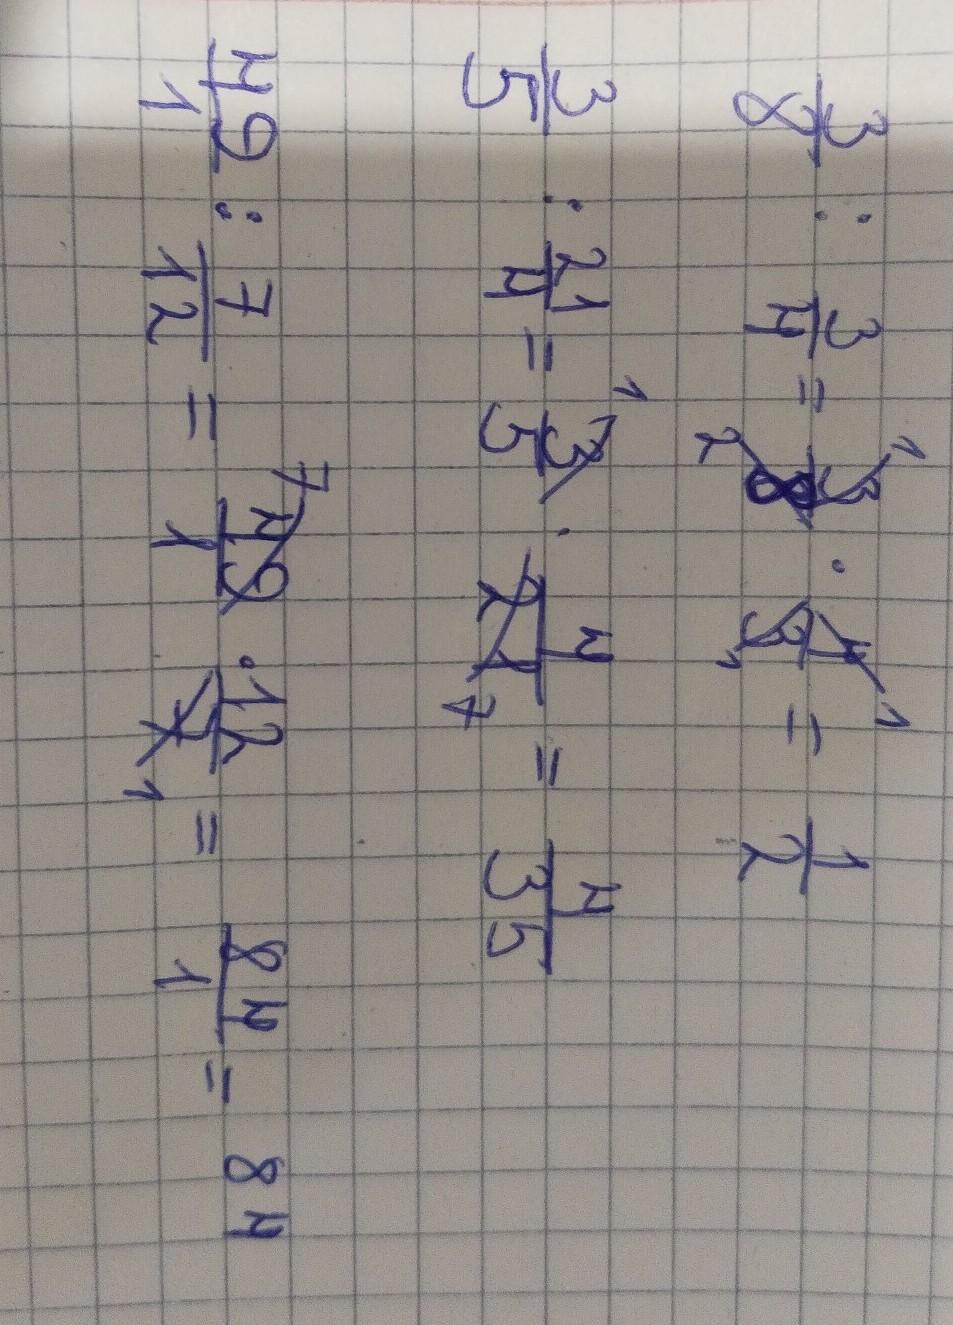 3/8 : 3/4 = 3/8 · 4/3 = 1/2
3/5 : 21/4 = 3/5 · 4/21 = 4/35
49/1 : 7/12 = 49/1 · 12/7 = 84/1 = 84